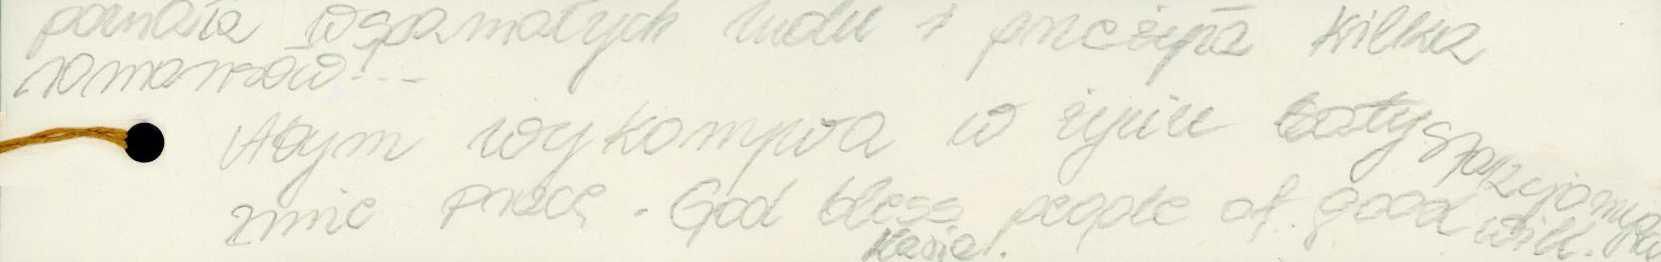 poznała wspaniałych ludzi i przeżyła kilka
romansów...
Abym wykonywała w życiu
mnie pracę. God bless people of good will.
Kasia.